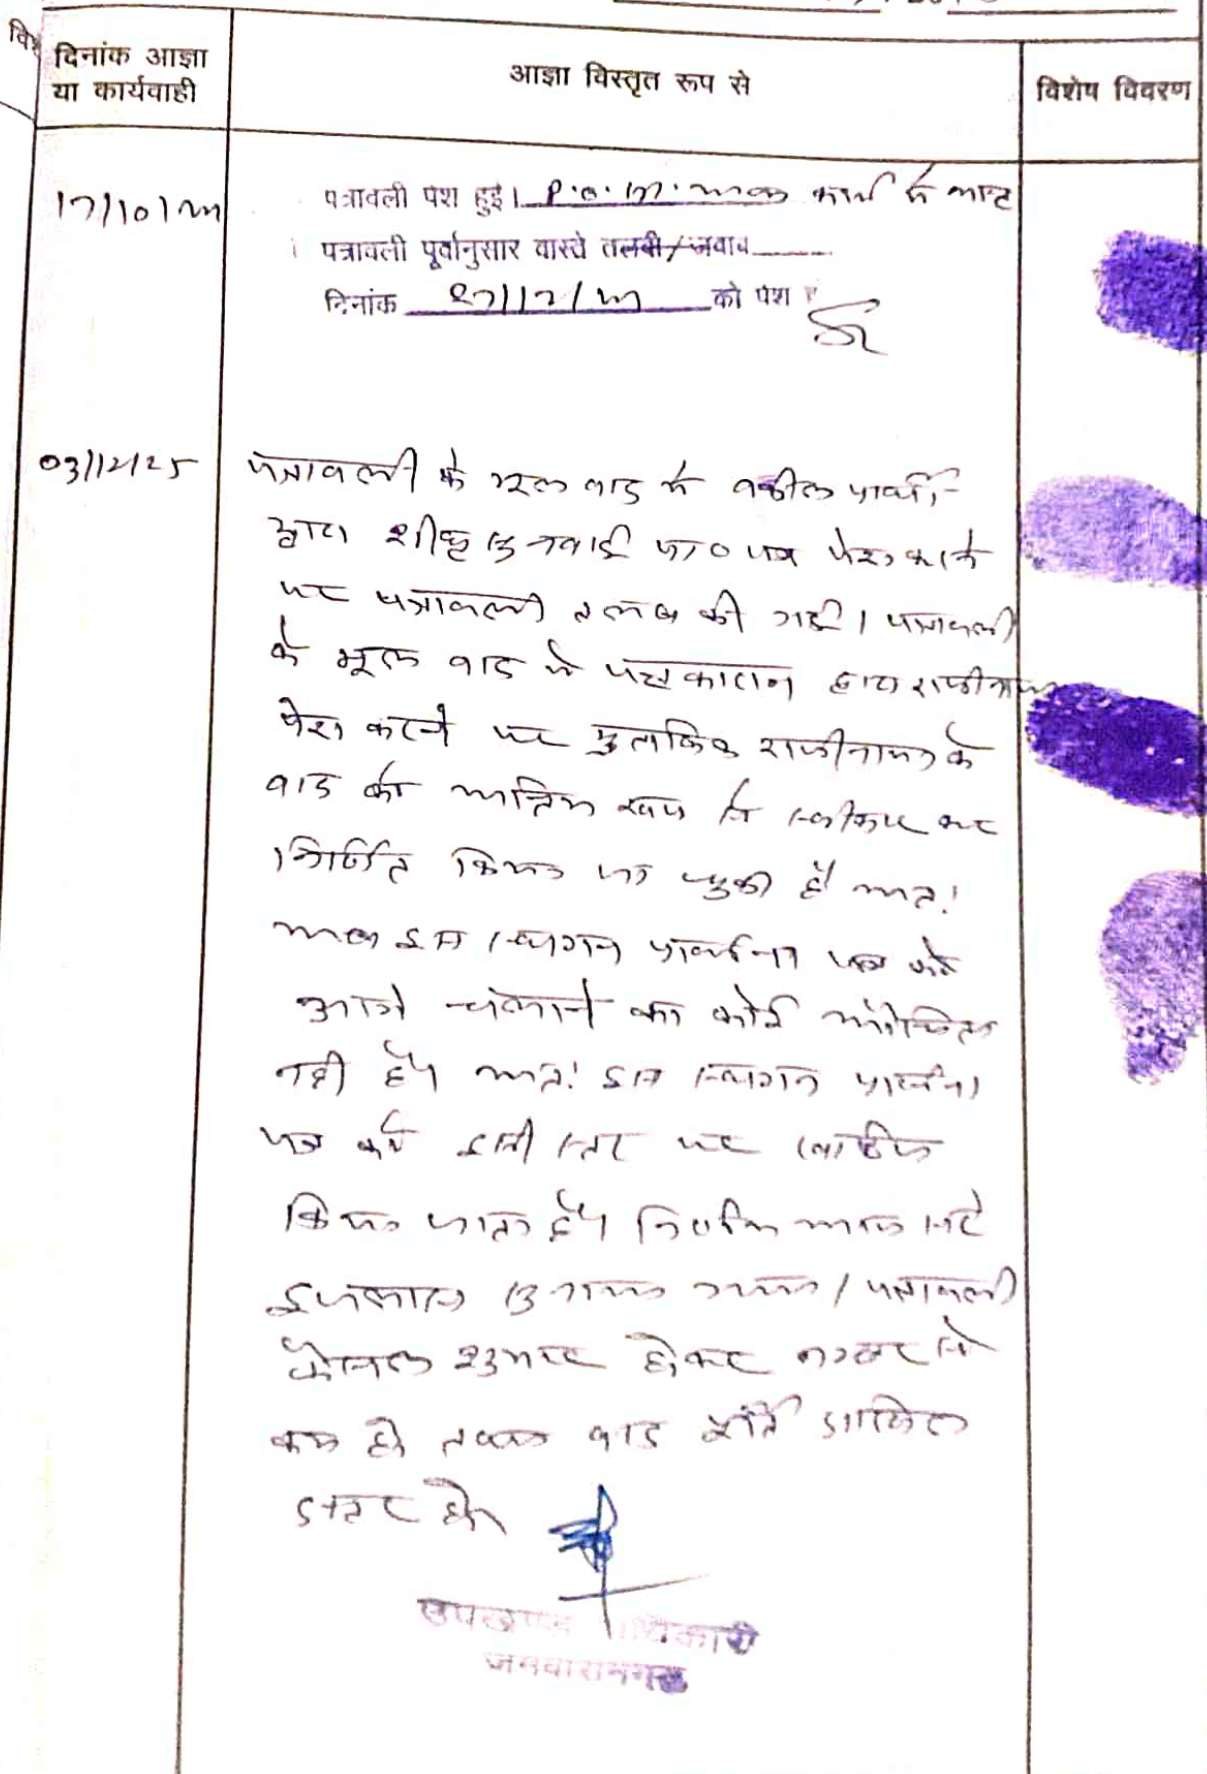 दिनांक आज्ञा
या कार्यवाही
आज्ञा विस्तृत रूप से
विशेष विवरण
पत्रावली पेश हुई। P.O. कार्य में
पत्रावली पूर्वानुसार वास्ते तलबी/जवाब
दिनांक को पेश
03/12/25
पत्रावली के मूल वाद में वकील प्रार्थी
द्वारा शीघ्र सुनवाई प्रा० पत्र पेश करने
पर पत्रावली तलब की गई। पत्रावली
के मूल वाद में पक्षकारान द्वारा राजीनामा
पेश करने पर मुताबिक राजीनामा के
वाद को अन्तिम रूप से स्वीकार कर
निर्णित किया जा चुका है अत:
अब इस स्थगन प्रार्थना पत्र को
आगे चलाने का कोई औचित्य
नही है। अत: इस स्थगन प्रार्थना
पत्र को इसी स्तर पर खारिज
किया जाता है। निर्णय आज सरे
इजलास सुनाया गया। पत्रावली
फैसल शुमार होकर नम्बर से
कम हो तथा वाद दाखिल
दफ्तर हो।
उपखण्ड अधिकारी
जमवारामगढ